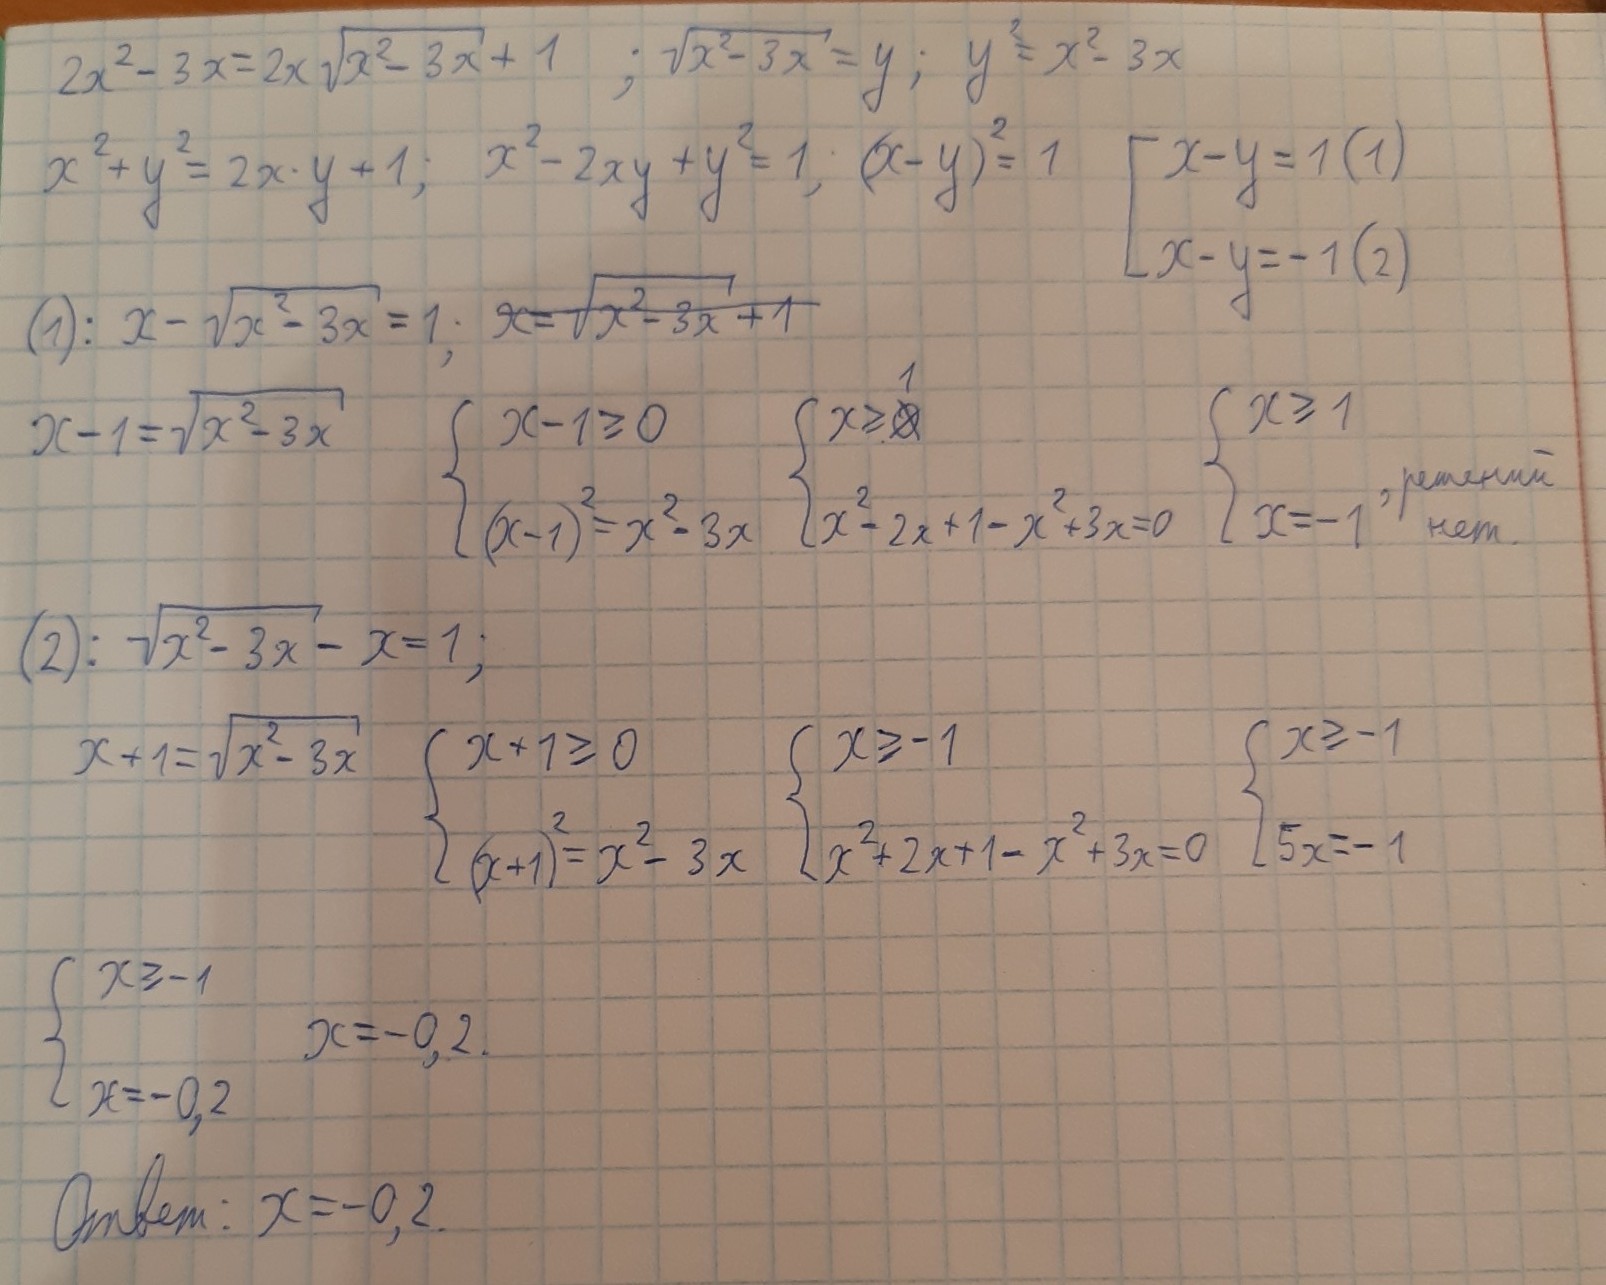 2x² - 3x = 2x√(x² - 3x) + 1 ; √(x² - 3x) = y ; y² = x² - 3x
x² + y² = 2x · y + 1 ; x² - 2xy + y² = 1 ; (x - y)² = 1 [ x - y = 1 (1)
x - y = -1 (2)
(1): x - √(x² - 3x) = 1 ; x = √(x² - 3x) + 1
x - 1 = √(x² - 3x) { x - 1 ≥ 0 { x ≥ 1 { x ≥ 1
(x - 1)² = x² - 3x x² - 2x + 1 - x² + 3x = 0 x = -1 , решений
нет.
(2): √(x² - 3x) - x = 1 ;
x + 1 = √(x² - 3x) { x + 1 ≥ 0 { x ≥ -1 { x ≥ -1
(x + 1)² = x² - 3x x² + 2x + 1 - x² + 3x = 0 5x = -1
{ x ≥ -1
x = -0,2.
x = -0,2
Ответ: x = -0,2.